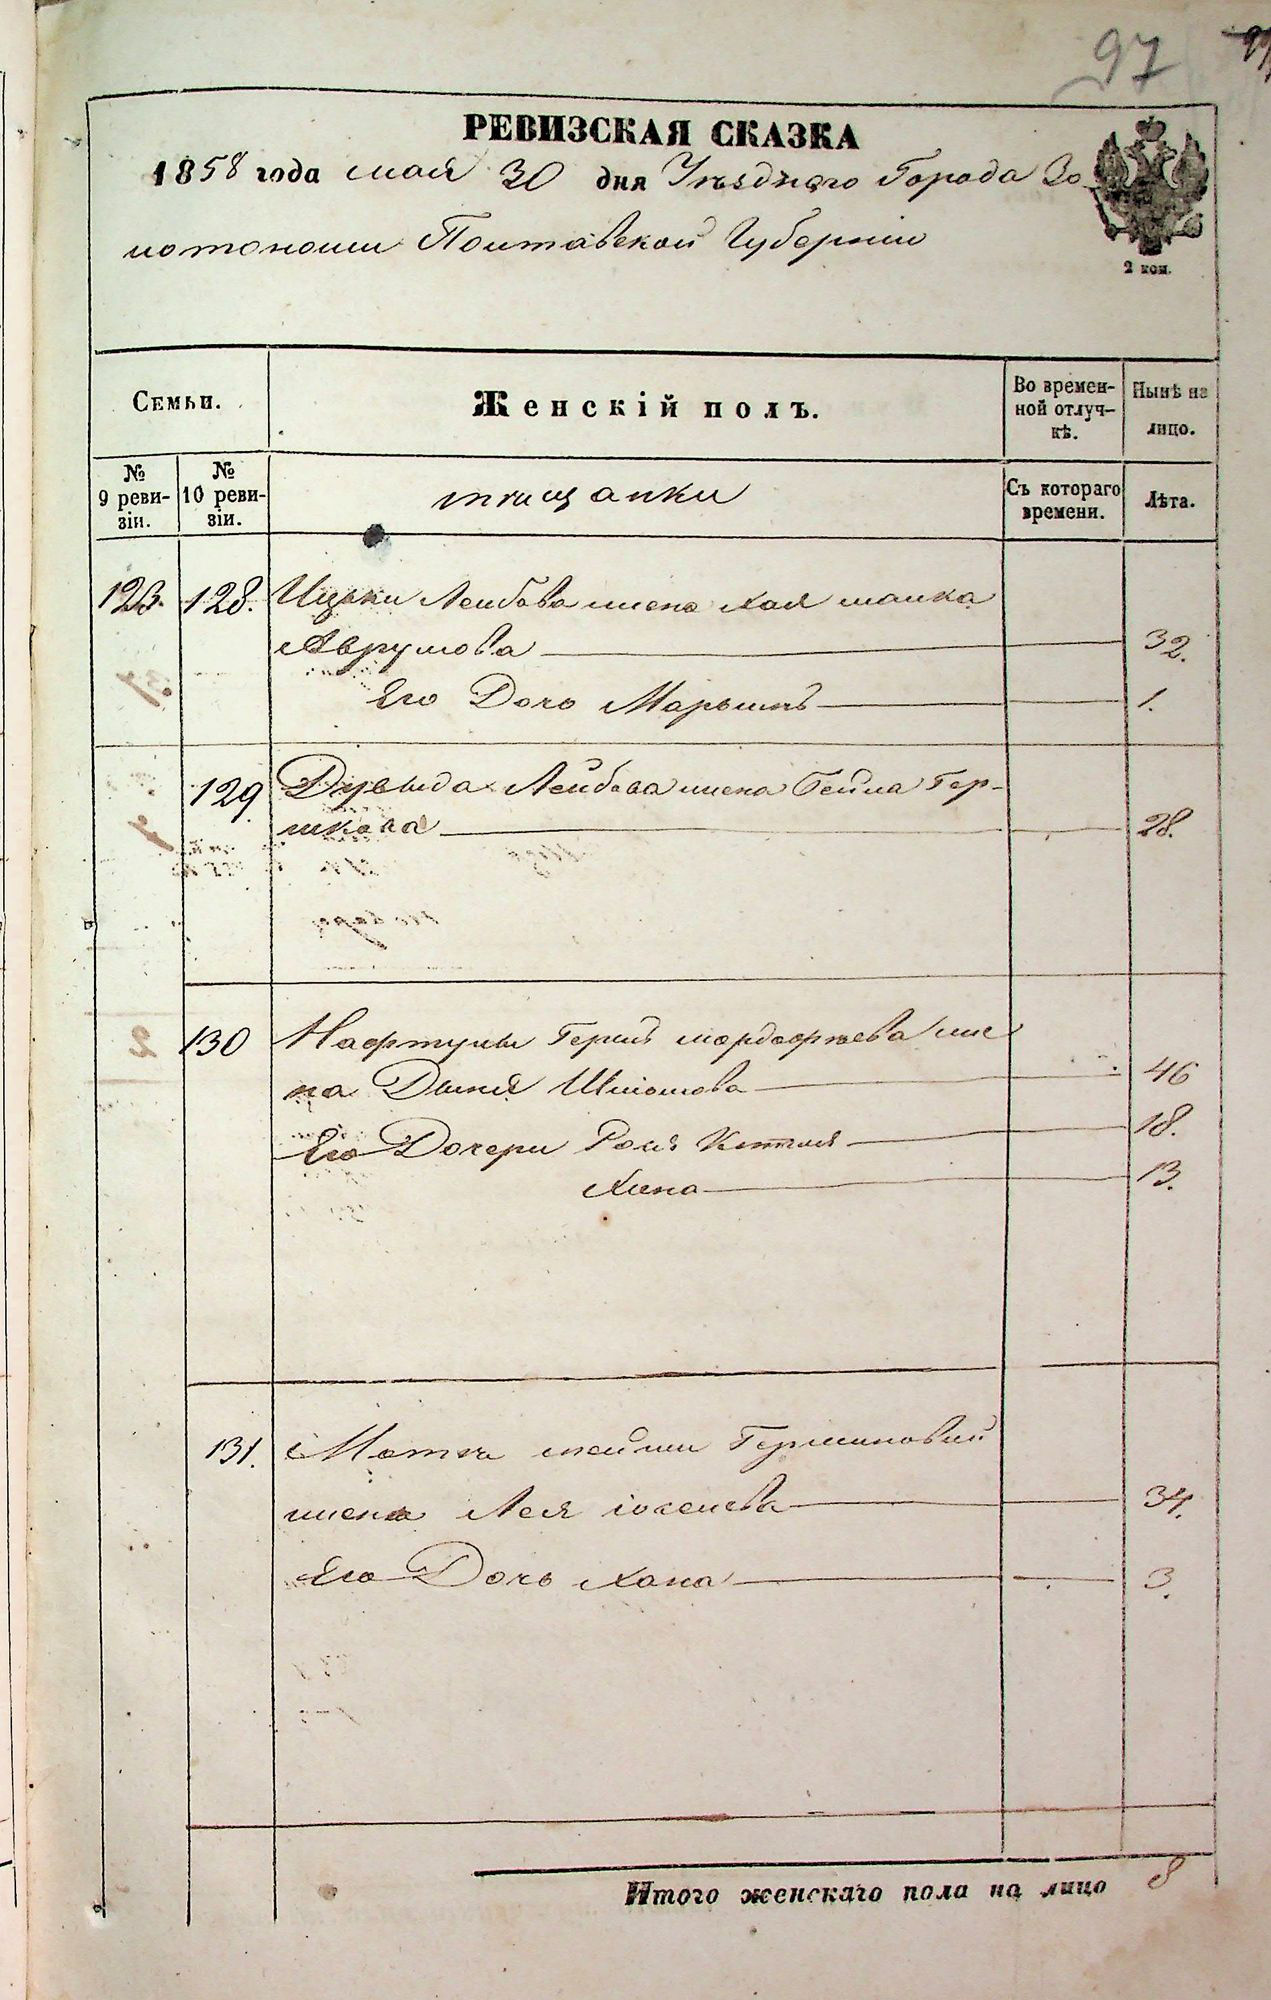 97
РЕВИЗСКАЯ СКАЗКА
1858 года мая 30 дня Уѣзднаго Города Зо-
лотоноши Полтавской Губерніи
2 коп.
Семьи.
Женскій полъ.
Во времен-
ной отлуч-
кѣ.
Нынѣ на
лицо.
№
9 реви-
зіи.
№
10 реви-
зіи.
мѣщанки
Съ котораго
времени.
Лѣта.
123. 128. Ицьки Лейбова жена Хая
Аврумова 32.
Его Дочь Марьимъ 1.
129 Дувыда Лейбова жена Бейла Гер-
шкова 28.
130 Нафтулы Герша Мордофѣева же
на Двыня Шліомова 46
Его Дочери 18.
Хана 13.
131.
жена Лея 34.
Его Дочь Хана 3.
Итого женскаго пола на лицо 8